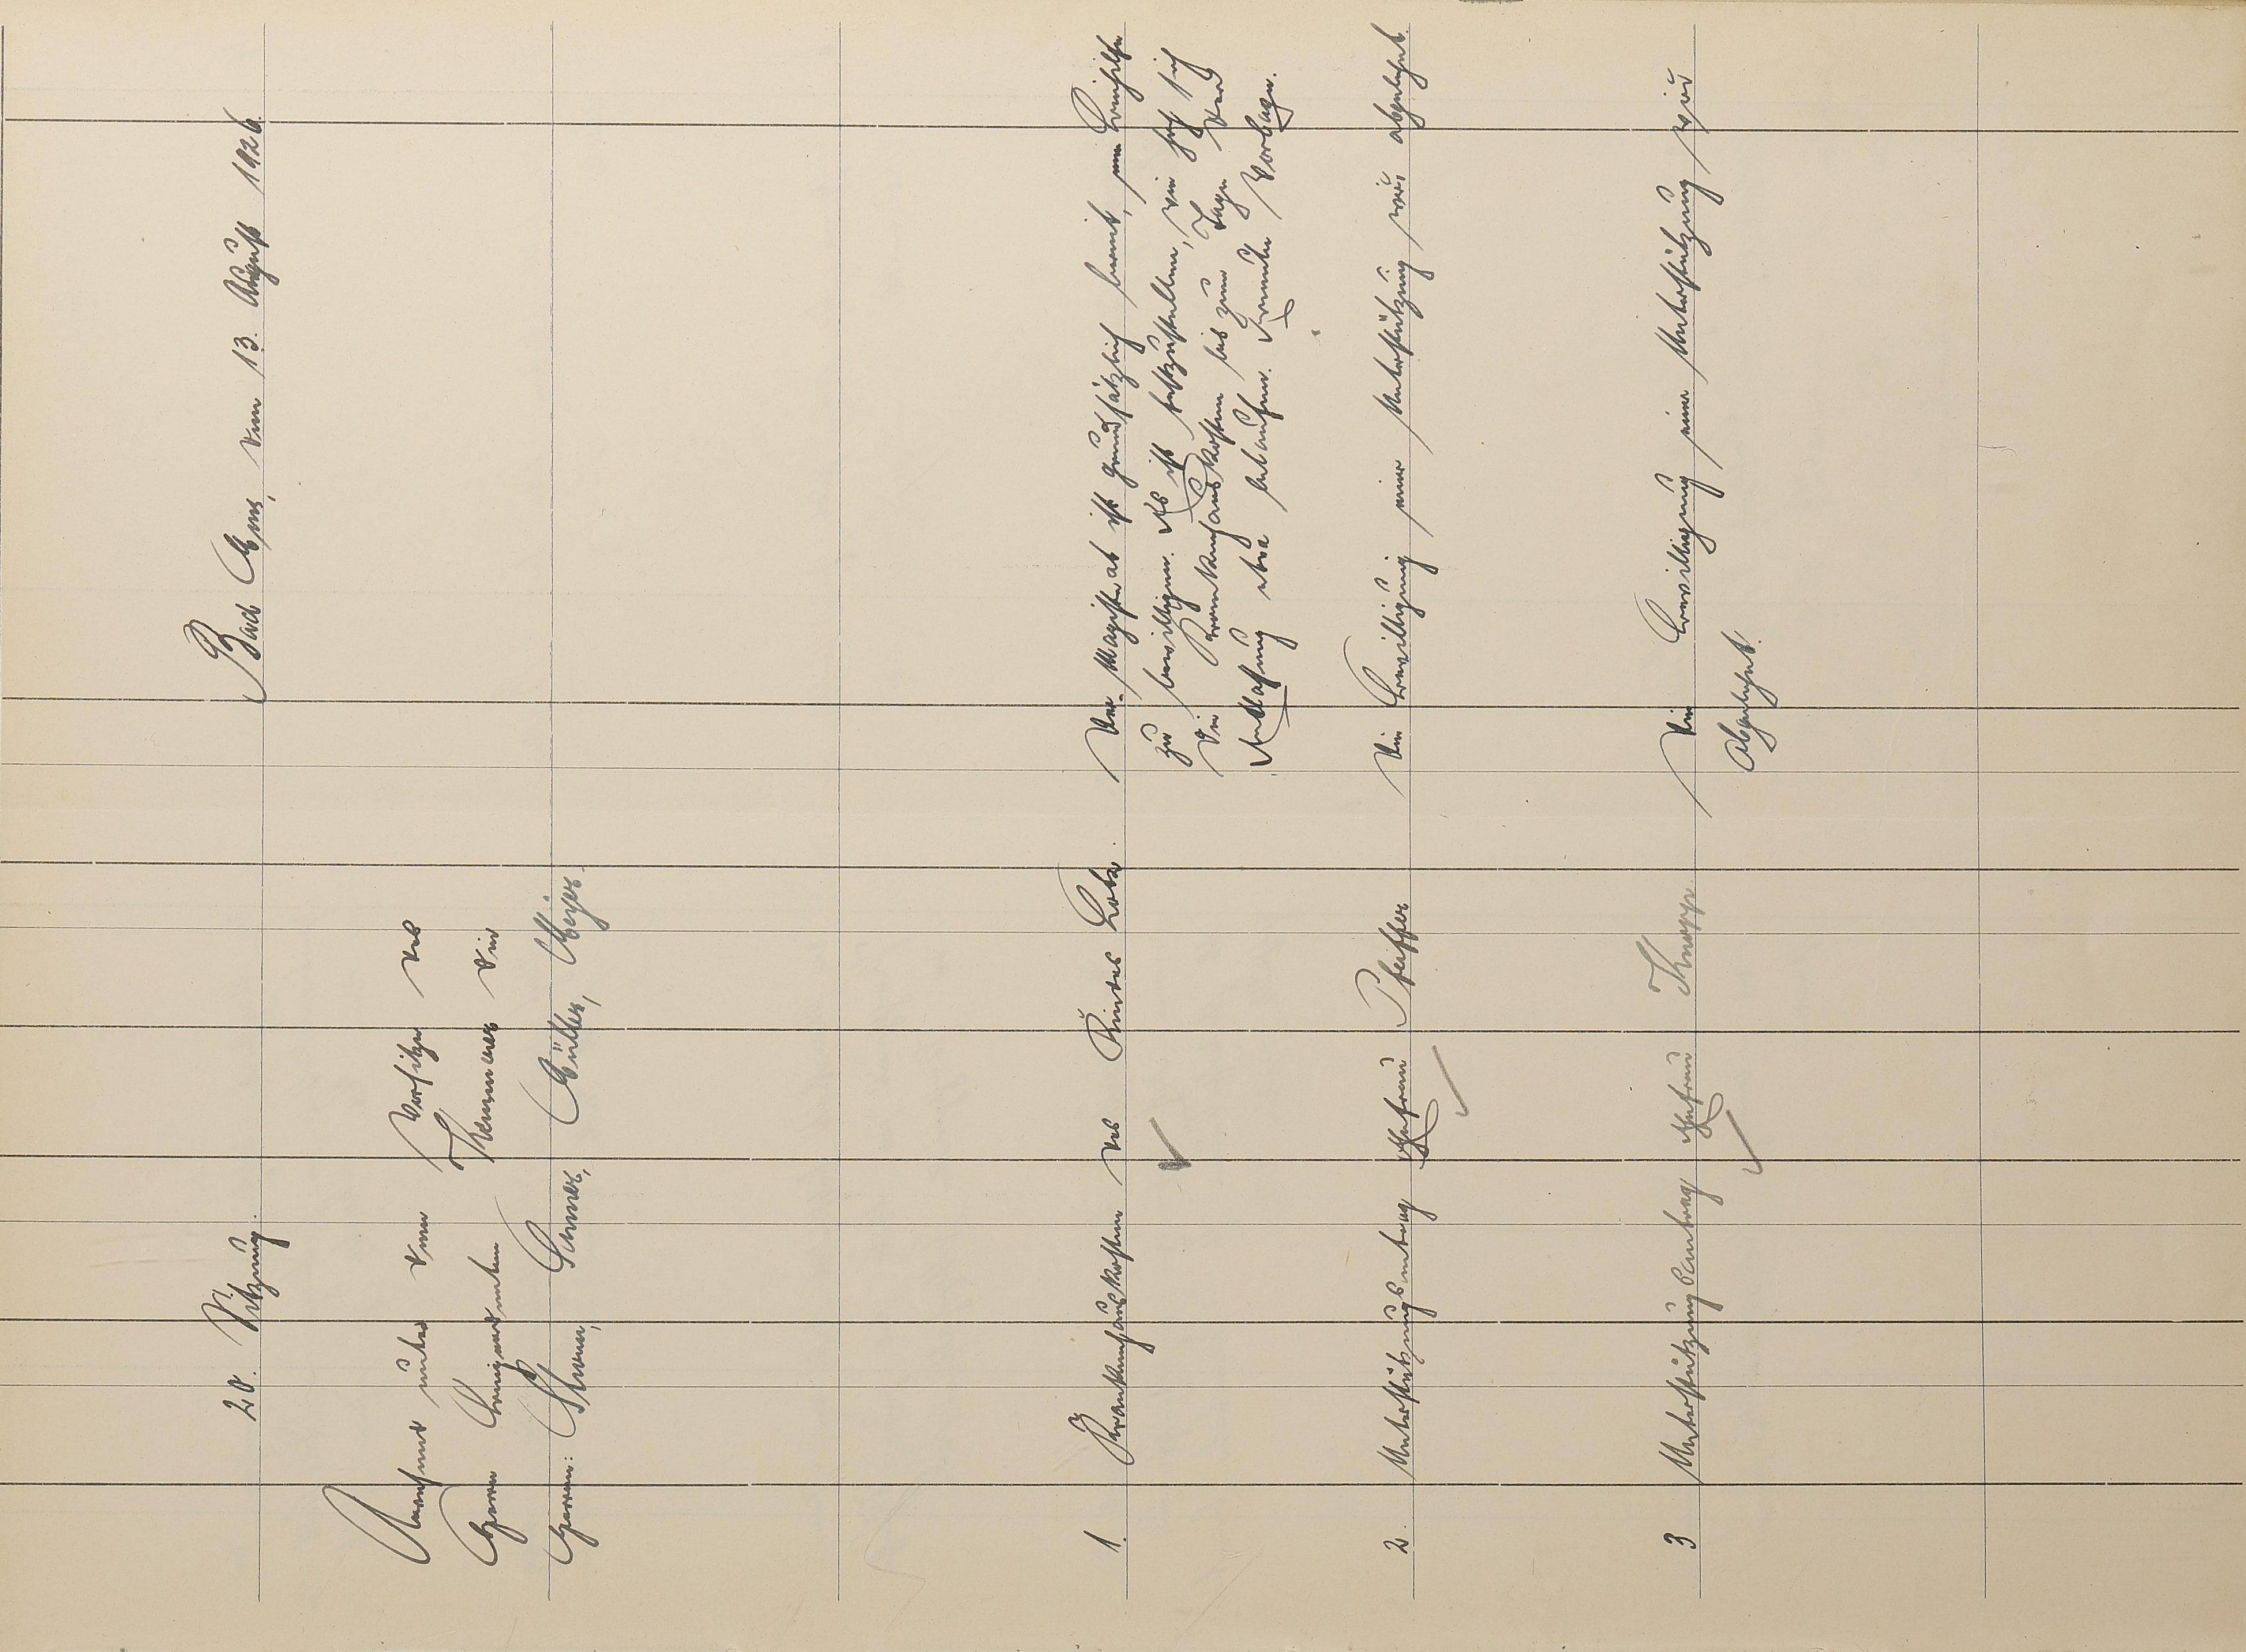 20. Sitzung.
Bad Ems, den 13. August 1926.
Anwesend unter dem Vorsitze des
Herrn Beigeordneten Thennerer die
Herren: Sturm, Sommer, Müller, Meyer.
1. Krankenhauskosten des Kindes
Der Magistrat ist grundsätzlich bereit, eine Beihilfe
zu bewilligen. Es ist festzustellen, wie hoch sich
die Krankenhauskosten bis zum Tage der
Entlassung etwa belaufen. Erneute Vorlage.
2. Unterstützungsantrag Ehefrau Pfeiffer
Die Bewilligung einer Unterstützung wird abgelehnt.
3 Unterstützungsantrag Ehefrau Knopp.
Die Bewilligung einer Unterstützung wird
abgelehnt.